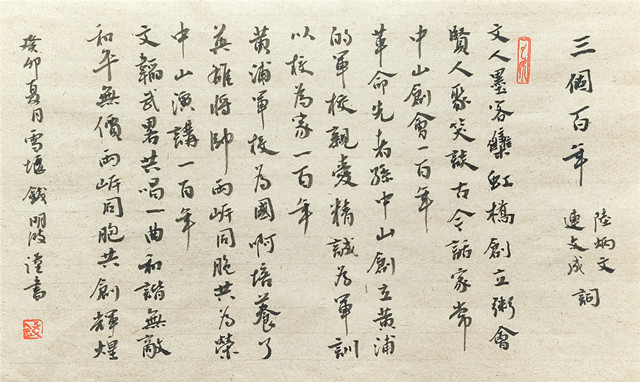 三個百年
陸炳文
連文成 詞
文人墨客聚虹橋創立粥會
賢人聚笑談古今話家常
中山創會一百年
革命先者孫中山創立黄浦
的軍校親愛精誠為軍訓
以校為家一百年
黄浦軍校為國啊培養了
英雄將帥兩岸同胞共為榮
中山演講一百年
文韜武畧共唱一曲和諧無敵
和平無價兩岸同胞共創輝煌
癸卯夏月雪堰錢明 謹書